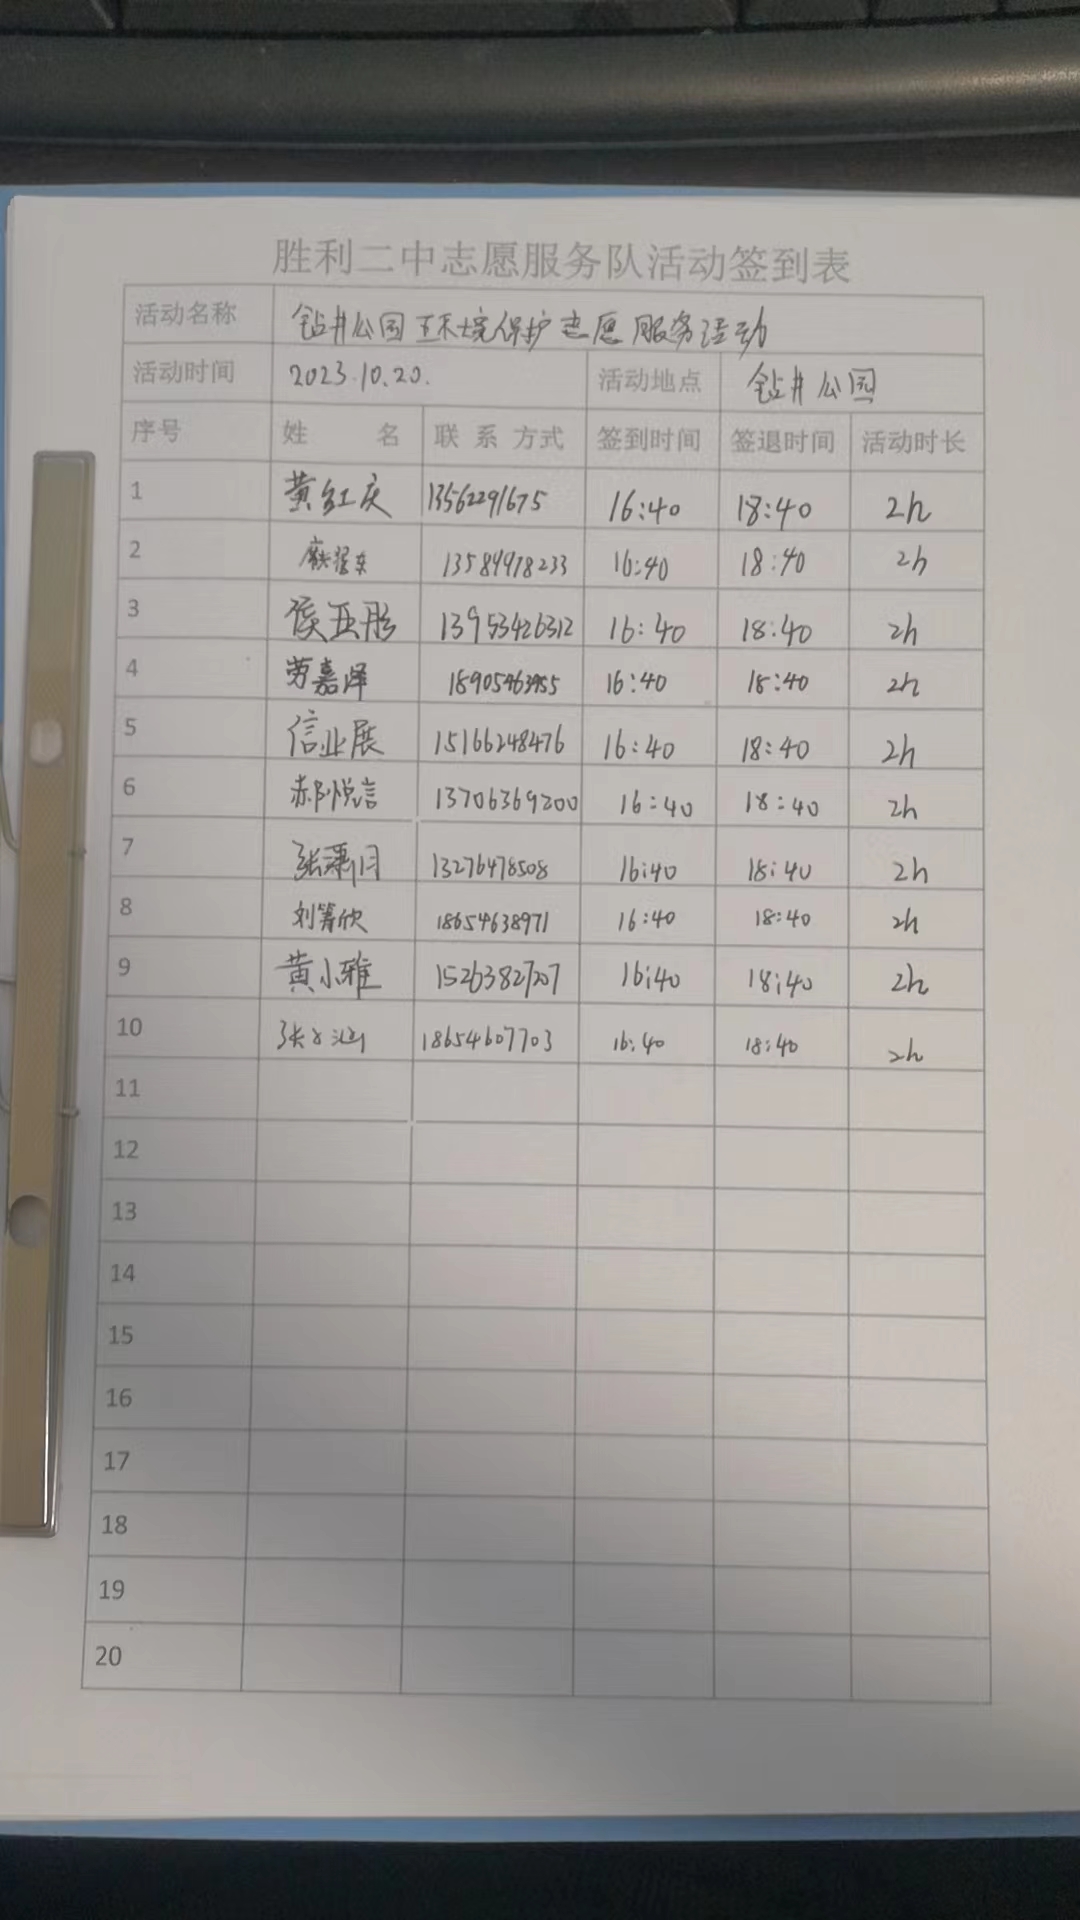 胜利二中志愿服务队活动签到表
活动名称 钻井公园环境保护志愿服务活动
活动时间 2023.10.20. 活动地点 钻井公园
序号 姓 名 联 系 方式 签到时间 签退时间 活动时长
1 黄红庆 13562291675 16:40 18:40 2h
2 13589918233 16:40 18:40 2h
3 侯亚彤 13953426312 16:40 18:40 2h
4 劳嘉泽 18905463955 16:40 18:40 2h
5 信业展 15166248476 16:40 18:40 2h
6 郝悦言 13706369200 16:40 18:40 2h
7 张潇月 13276478508 16:40 18:40 2h
8 刘箐欣 18654638971 16:40 18:40 2h
9 黄小雅 15263827207 16:40 18:40 2h
10 18654607703 16:40 18:40 2h
11
12
13
14
15
16
17
18
19
20